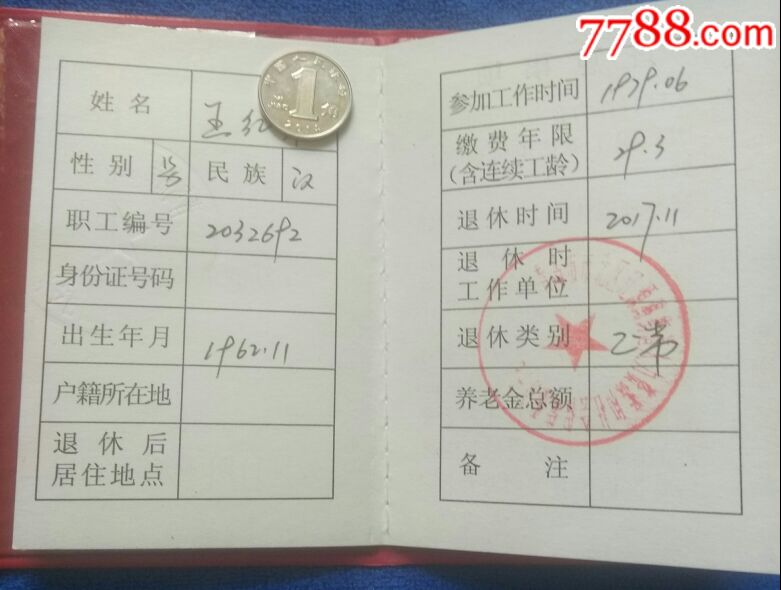 7788.com
姓名 王红
1
性别 男 民族 汉
职工编号 2032692
身份证号码
出生年月 1962.11
户籍所在地
退休后
居住地点
参加工作时间 1979.06
缴费年限
(含连续工龄) 29.3
退休时间 2017.11
退休时
工作单位
退休类别 正常
养老金总额
备注